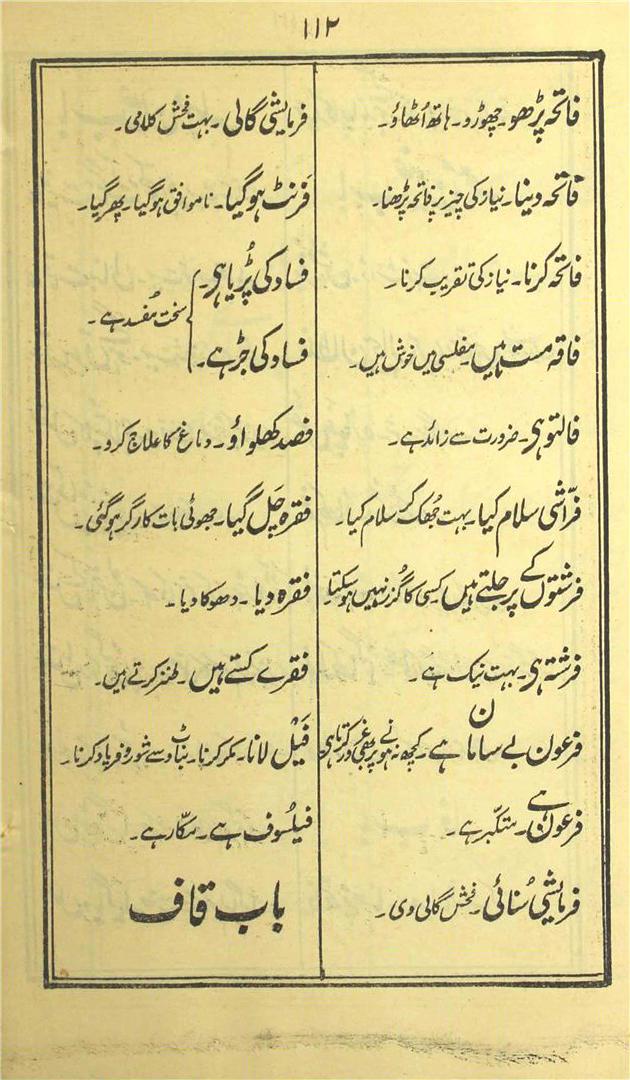 ۱۱۲
فاتحہ پڑھو۔ چھوڑو۔ ہاتھ اُٹھاؤ۔
فاتحہ دینا۔ نیاز کی چیز پر فاتحہ پڑھنا۔
فاتحہ کرنا۔ نیاز کی تقریب کرنا۔
فاقہ مست ہیں۔ مفلسی میں خوش ہیں۔
فالتو ہی۔ ضرورت سے زائد ہے۔
فرّاشی سلام کیا۔ بہت جُھک کر سلام کیا۔
فرشتوں کے پر جلتے ہیں کسی کا گزر نہیں ہو سکتا۔
فرشتہ ہی۔ بہت نیک ہے۔
فرعون بے سامان ہے۔ کچھ نہ ہونے پر بھی غرور کرتا ہی
فرعون ہے۔ متکبّر ہے۔
فرمایشی سُنائی۔ فحش گالی دی۔
فرمایشی گالی۔ بہت فحش کلامی۔
فَرنٹ ہو گیا۔ ناموافق ہو گیا۔ پھر گیا۔
فساد کی پُڑیا ہی۔
فساد کی جڑ ہے۔
سخت مُفسد ہے۔
فصد کھلواؤ۔ دماغ کا علاج کرو۔
فقرہ چَل گیا۔ جھوٹی بات کارگر ہو گئی۔
فقرہ دیا۔ دھوکا دیا۔
فقرے کستے ہیں۔ طنز کرتے ہیں۔
فَیل لانا۔ مکر کرنا۔ بناوٹ سے شور و فریاد کرنا۔
فیلسُوف ہے۔ مکّار ہے۔
باب قاف